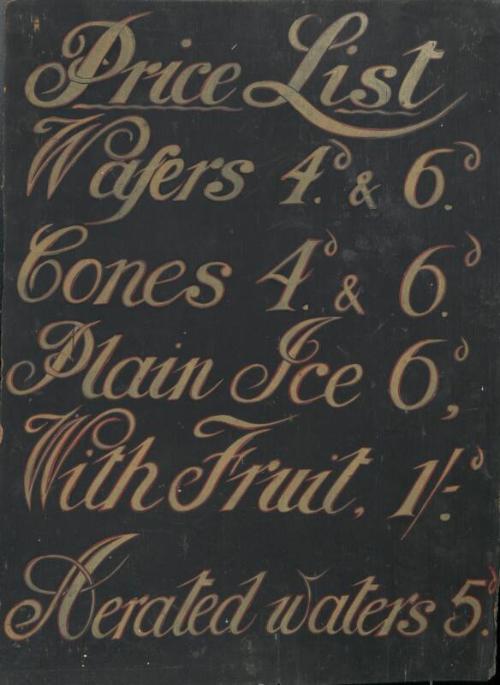 Price List
Wafers 4.d & 6.d
Cones 4.d & 6.d
Plain Ice 6,d
With Fruit, 1/-.d
Aerated waters 5.d